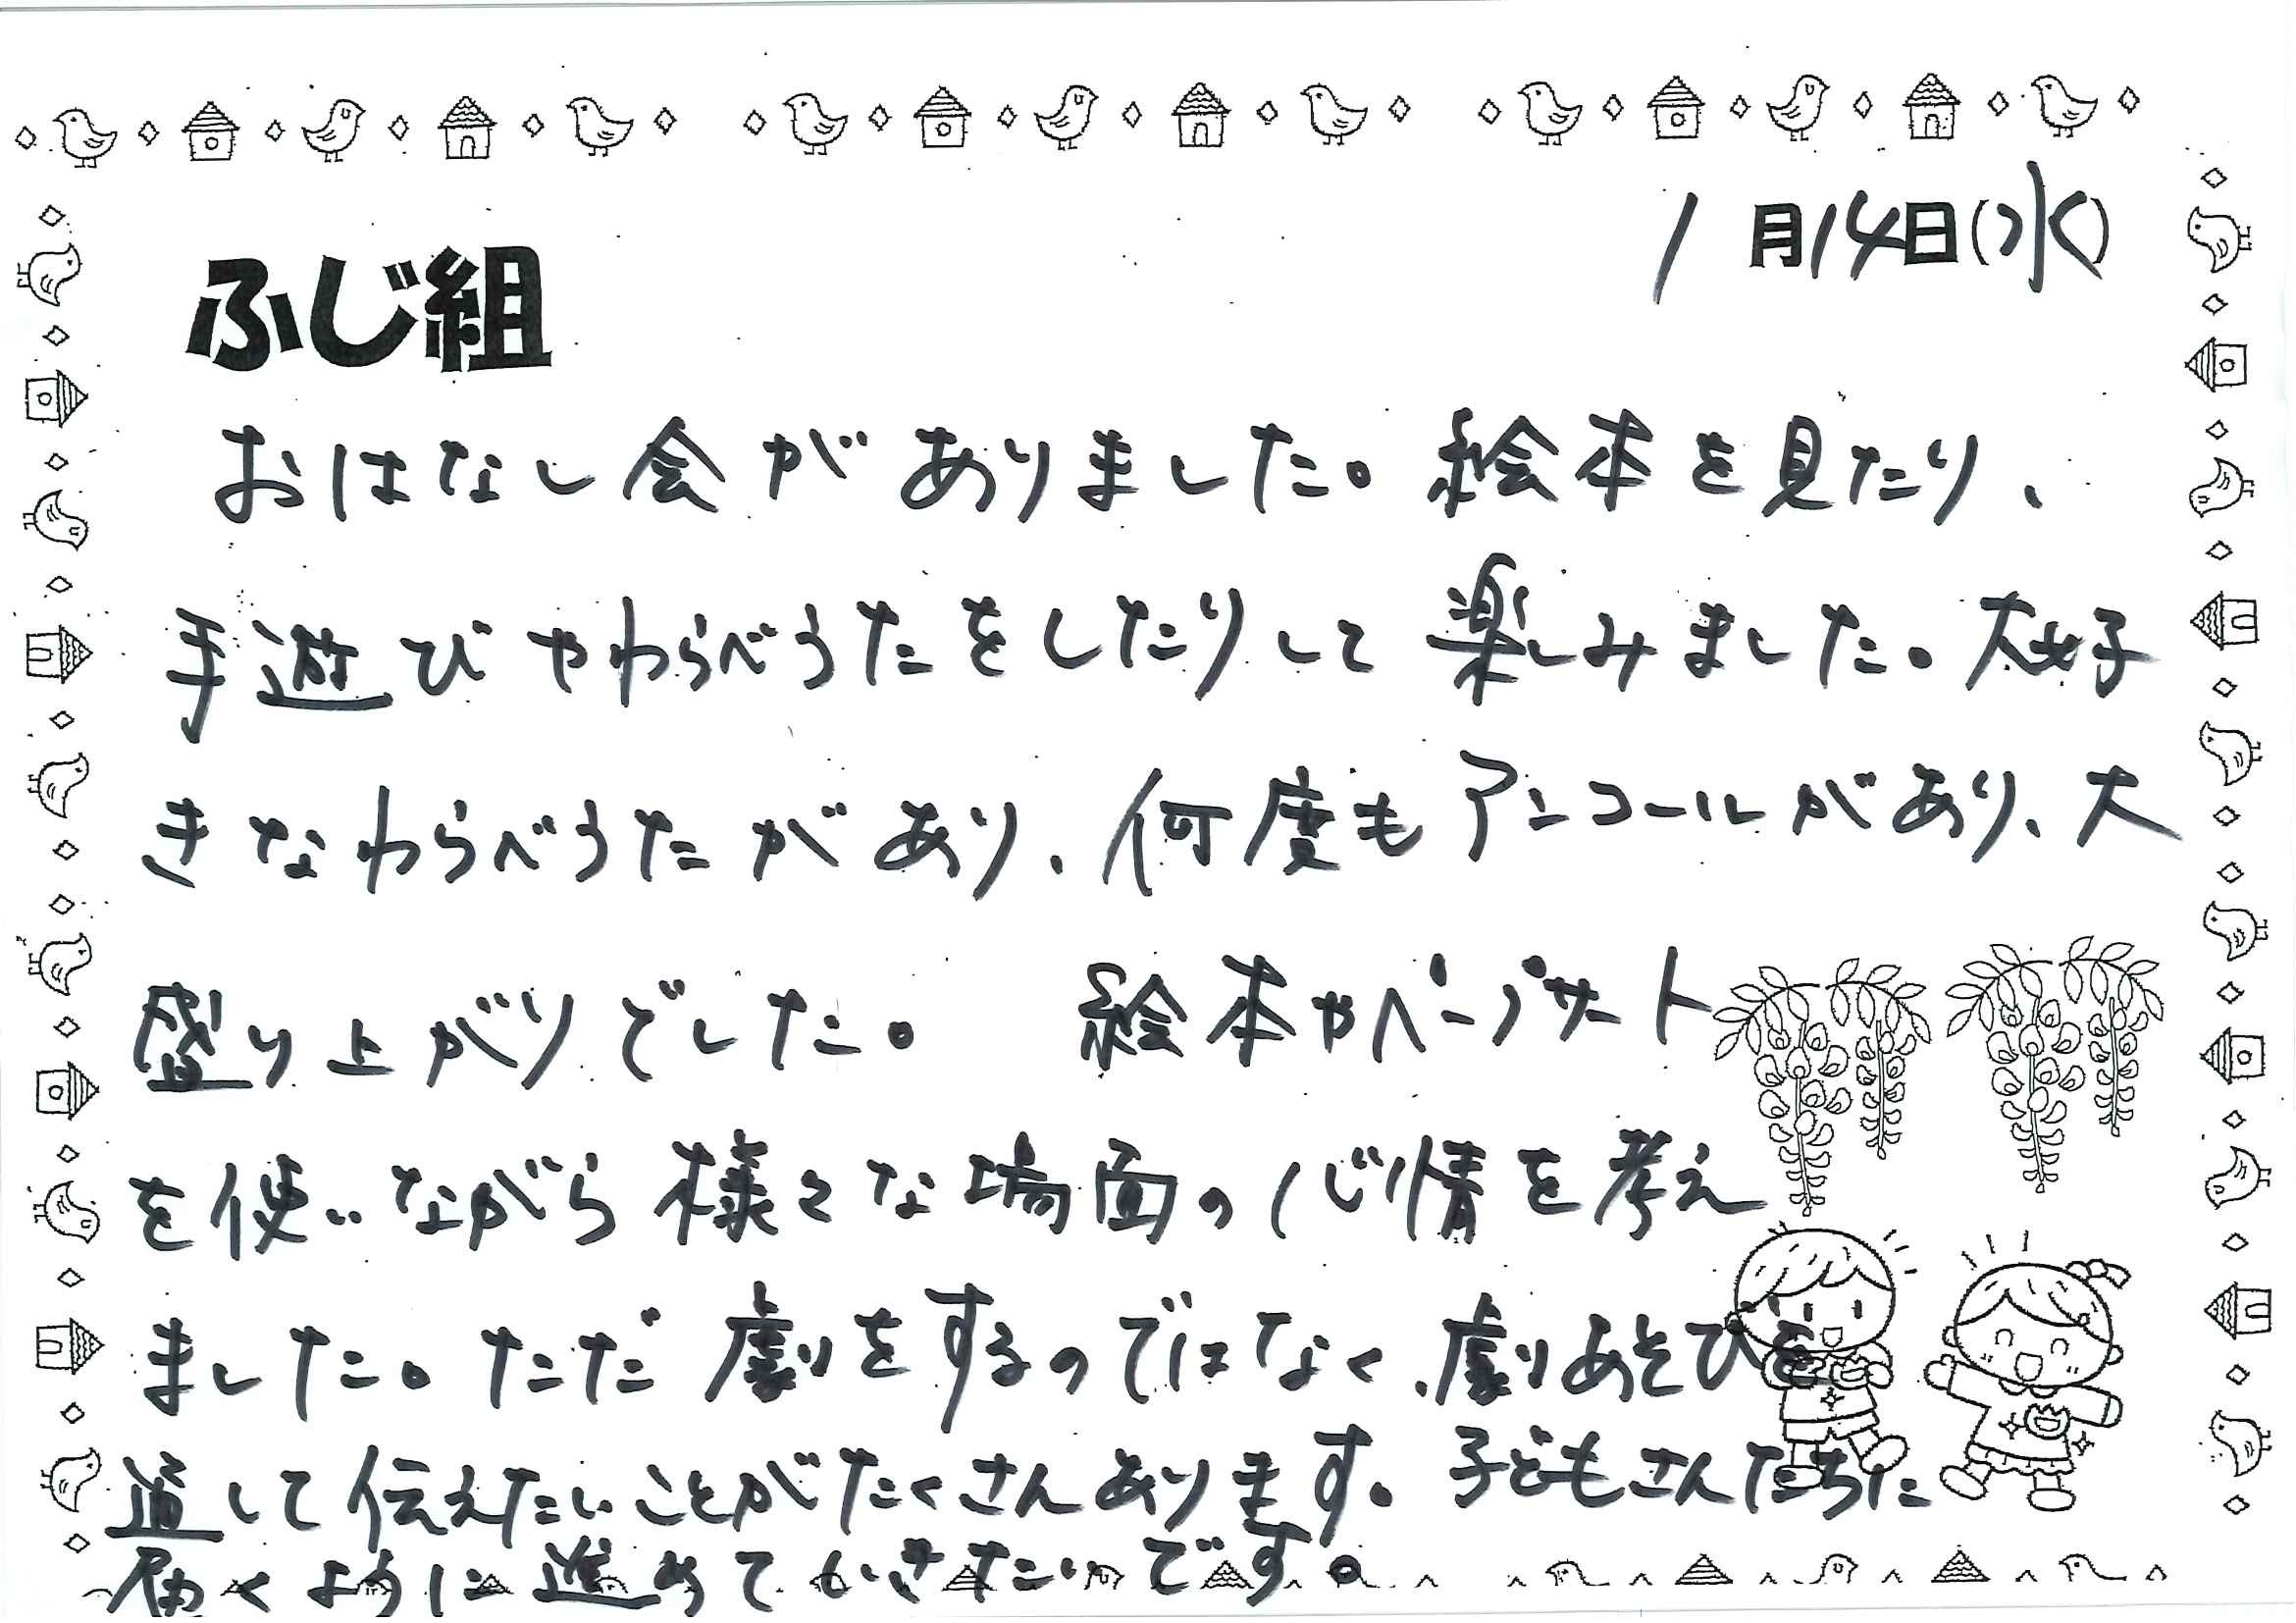 1月14日(水)
ふじ組
おはなし会がありました。絵本を見たり、
手遊びやわらべうたをしたりして楽しみました。大好
きなわらべうたがあり、何度もアンコールがあり、大
盛り上がりでした。 絵本やペープサート
を使いながら様々な場面の心情を考え
ました。ただ劇をするのではなく、劇あそびを
通して伝えたいことがたくさんあります。子どもさんたちに
届くように進めていきたいです。